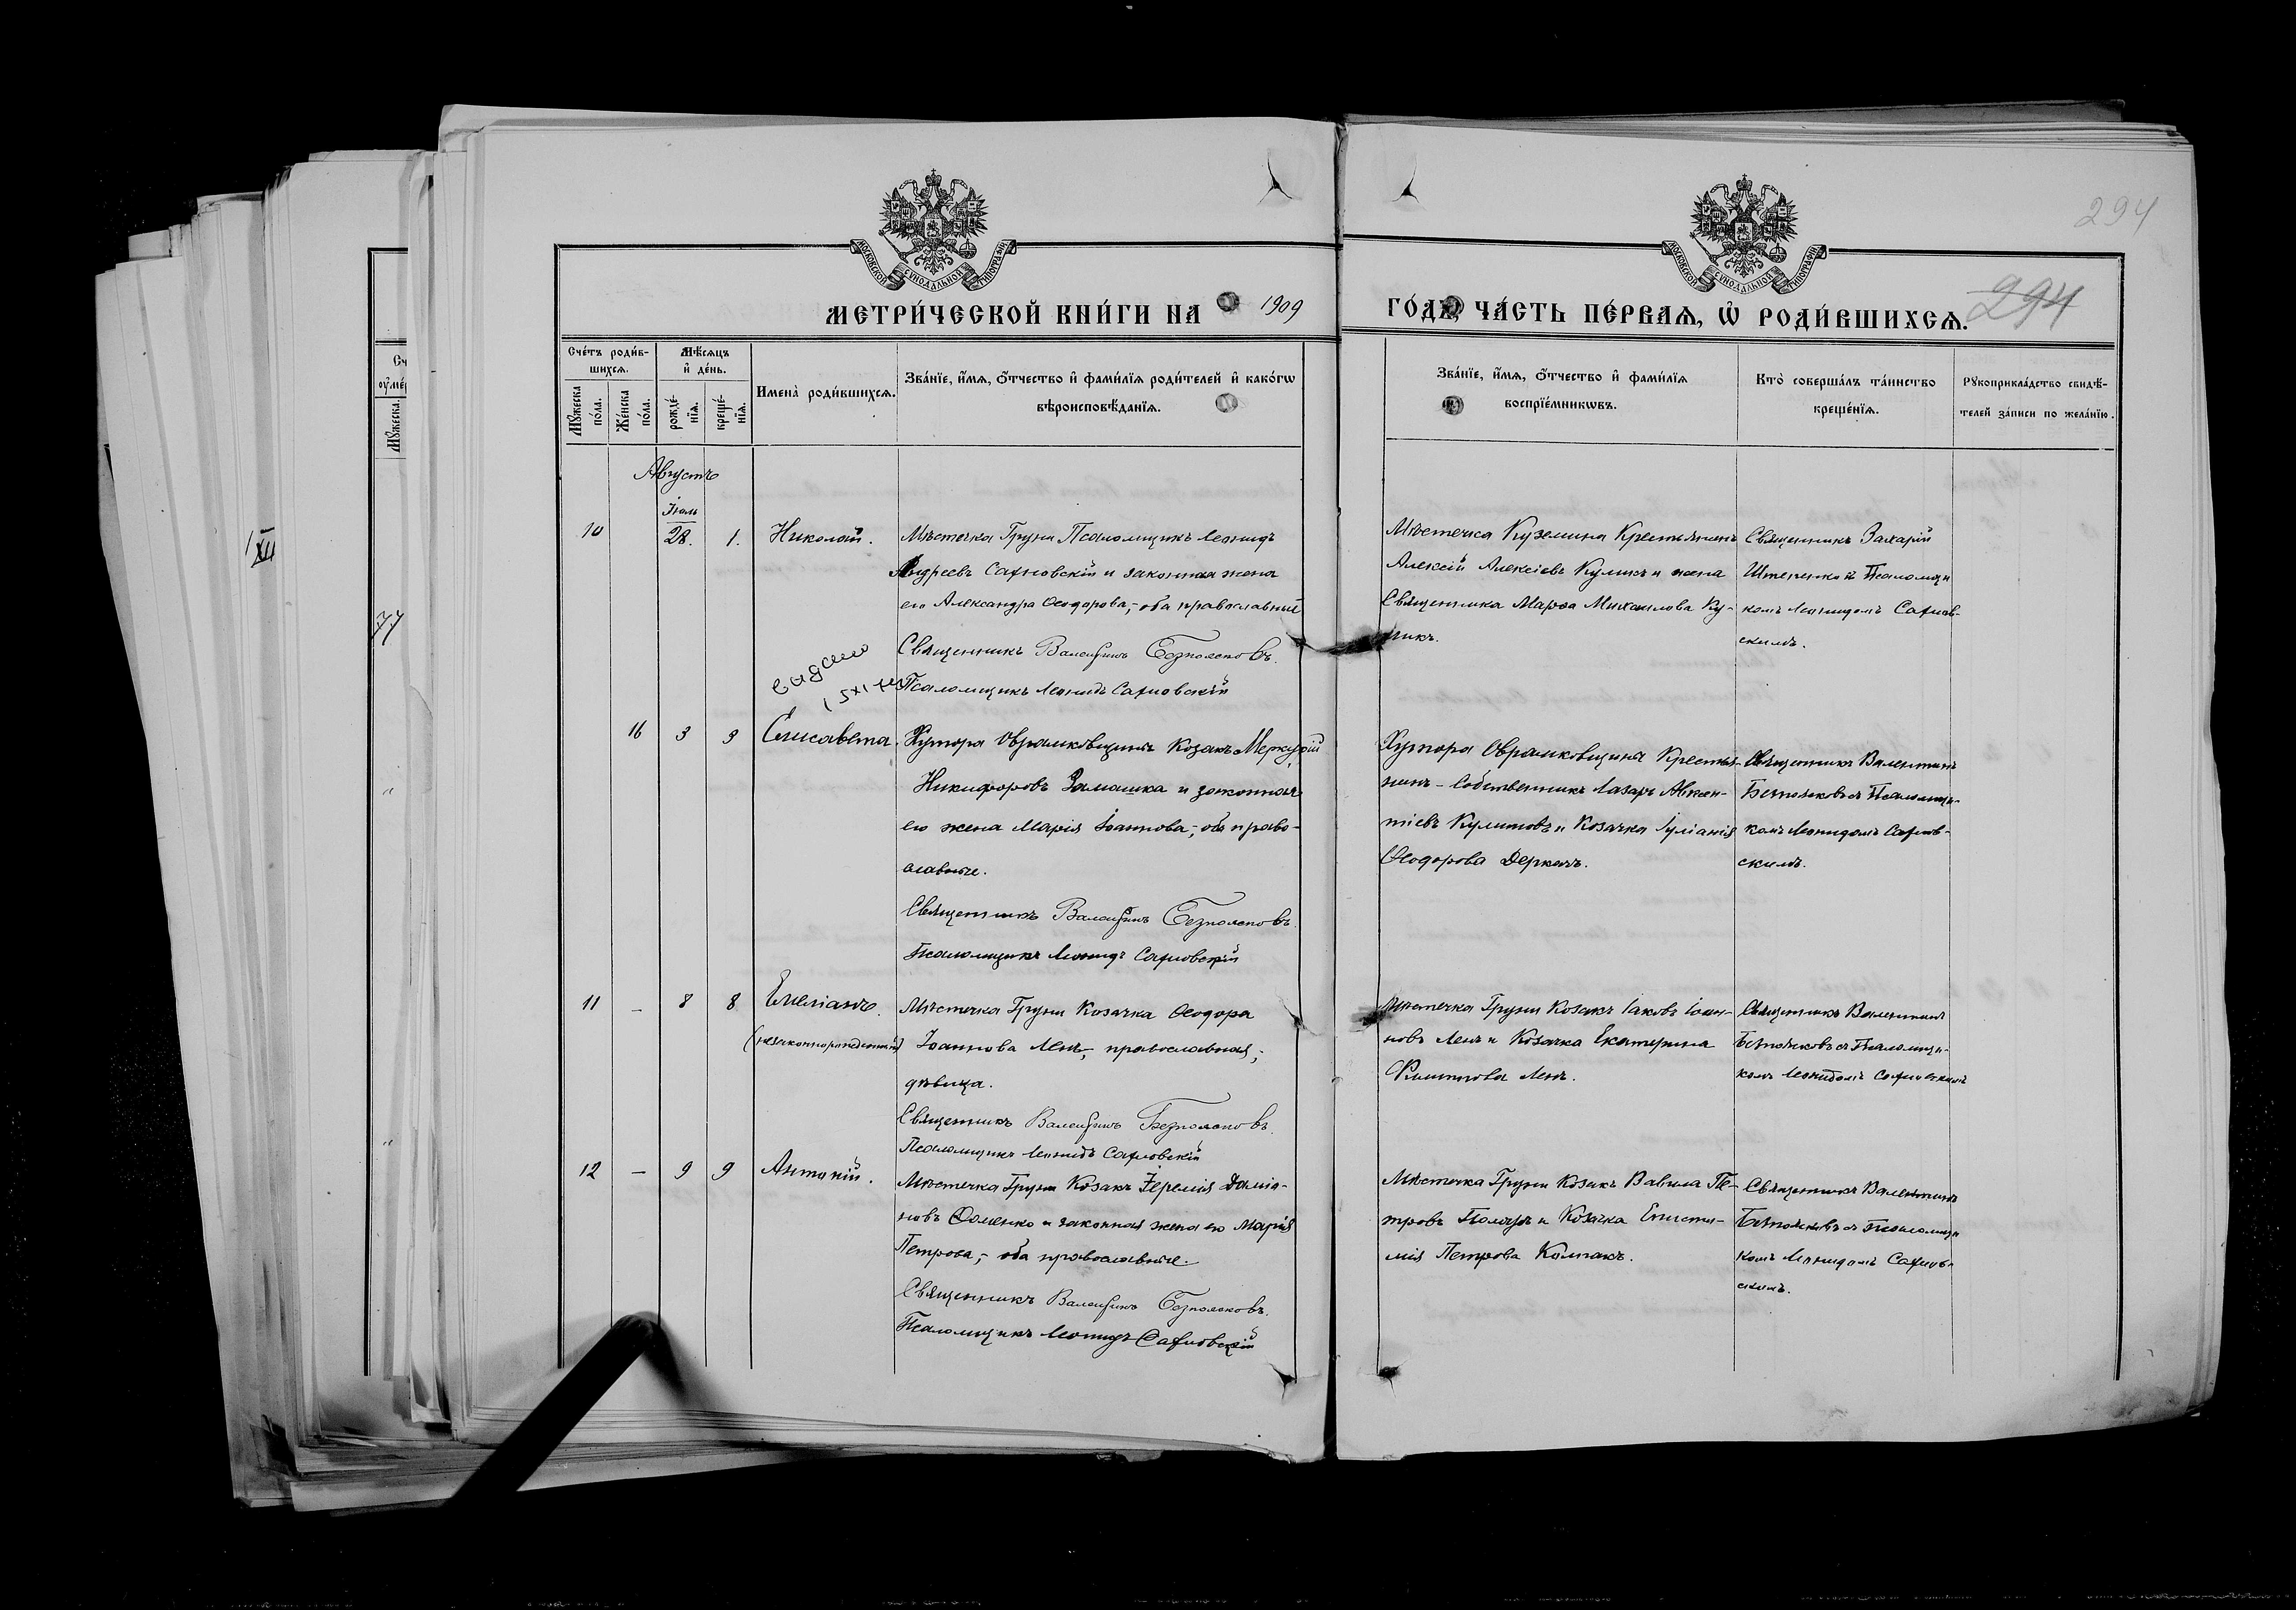 294
МОСКОВСКОЙ СѴНОДАЛЬНОЙ ТИПОГРАФІИ
МОСКОВСКОЙ СѴНОДАЛЬНОЙ ТИПОГРАФІИ
МЕТРИ́ЧЕСКОЙ КНИ́ГИ НА 1909 ГО́ДЪ, ЧА́СТЬ ПЕ́РВАѦ, Ѡ РОДИ́ВШИХСѦ.
294
Сче́тъ роди́в-
шихсѧ.
Мꙋ́жеска по́ла.
Же́нска по́ла.
Мѣ́сѧцъ
и́ де́нь.
рожде́-
нїѧ.
креще́-
нїѧ.
Имена̀ роди́вшихсѧ.
Зва́нїе, и́мѧ, ѻ҆́тчество и҆ фами́лїѧ роди́телей и҆ како́гѡ
вѣроисповѣ́данїѧ.
Зва́нїе, и́мѧ, ѻ҆́тчество и҆ фами́лїѧ
воспрїе́мникѡвъ.
Кто̀ соверша́лъ та́инство
креще́нїѧ.
Рꙋкоприкла́дство свидѣ́-
телей за́писи по жела́нїю.
Августъ
Іюль
10 28. 1. Николай.
Мѣстечка Груни Псаломщикъ Леонидъ
Андреевъ Сахновскій и законная жена
его Александра Ѳеодорова,- оба православные
Священникъ Валентинъ Безпояковъ.
Псаломщикъ Леонидъ Сахновскій
Мѣстечка Куземина Крестьянинъ
Алексій Алексіевъ Куликъ и жена
Священника Марѳа Михаилова Ку-
ликъ.
Священникъ Захарій
Псаломщи
комъ Леонидомъ Сахнов-
скимъ.
видано
16 3 3 Елисавета.
Хутора Козакъ Меркурій
Никифоровъ Замашка и законная
его жена Марія Іоаннова,- оба право-
славные.
Священникъ Валентинъ Безпояковъ.
Псаломщикъ Леонидъ Сахновскій
Хутора Крестья-
нинъ-собственникъ Лазарь Авксен-
тіевъ Куликовъ и Козачка Іуліанія
Ѳеодорова Деркачъ.
Священникъ Валентинъ
Безпояковъ съ Псаломщи-
комъ Леонидомъ Сахнов-
скимъ.
11 - 8 8 Емеліанъ.
(незаконнорожденный)
Мѣстечка Груни Козачка Ѳеодора
Іоаннова Лень,- православная,-
дѣвица.
Священникъ Валентинъ Безпояковъ.
Псаломщикъ Леонидъ Сахновскій
Мѣстечка Груни Козакъ Іаковъ Іоан-
новъ Лень и Козачка Екатерина
Филиппова Лень.
Священникъ Валентинъ
Безпояковъ съ Псаломщи-
комъ Леонидомъ Сахновскимъ
12 - 9 9 Антоній.
Мѣстечка Груни Козакъ Іеремія Даміа-
новъ Фоменко и законная жена его Марія
Петрова,- оба православные.
Священникъ Валентинъ Безпояковъ.
Псаломщикъ Леонидъ Сахновскій
Мѣстечка Груни Козакъ Вавила Пе-
тровъ и Козачка Еписти-
мія Петрова Колпакъ.
Священникъ Валентинъ
Безпояковъ съ Псаломщи
комъ Леонидомъ Сахнов-
скимъ.
77